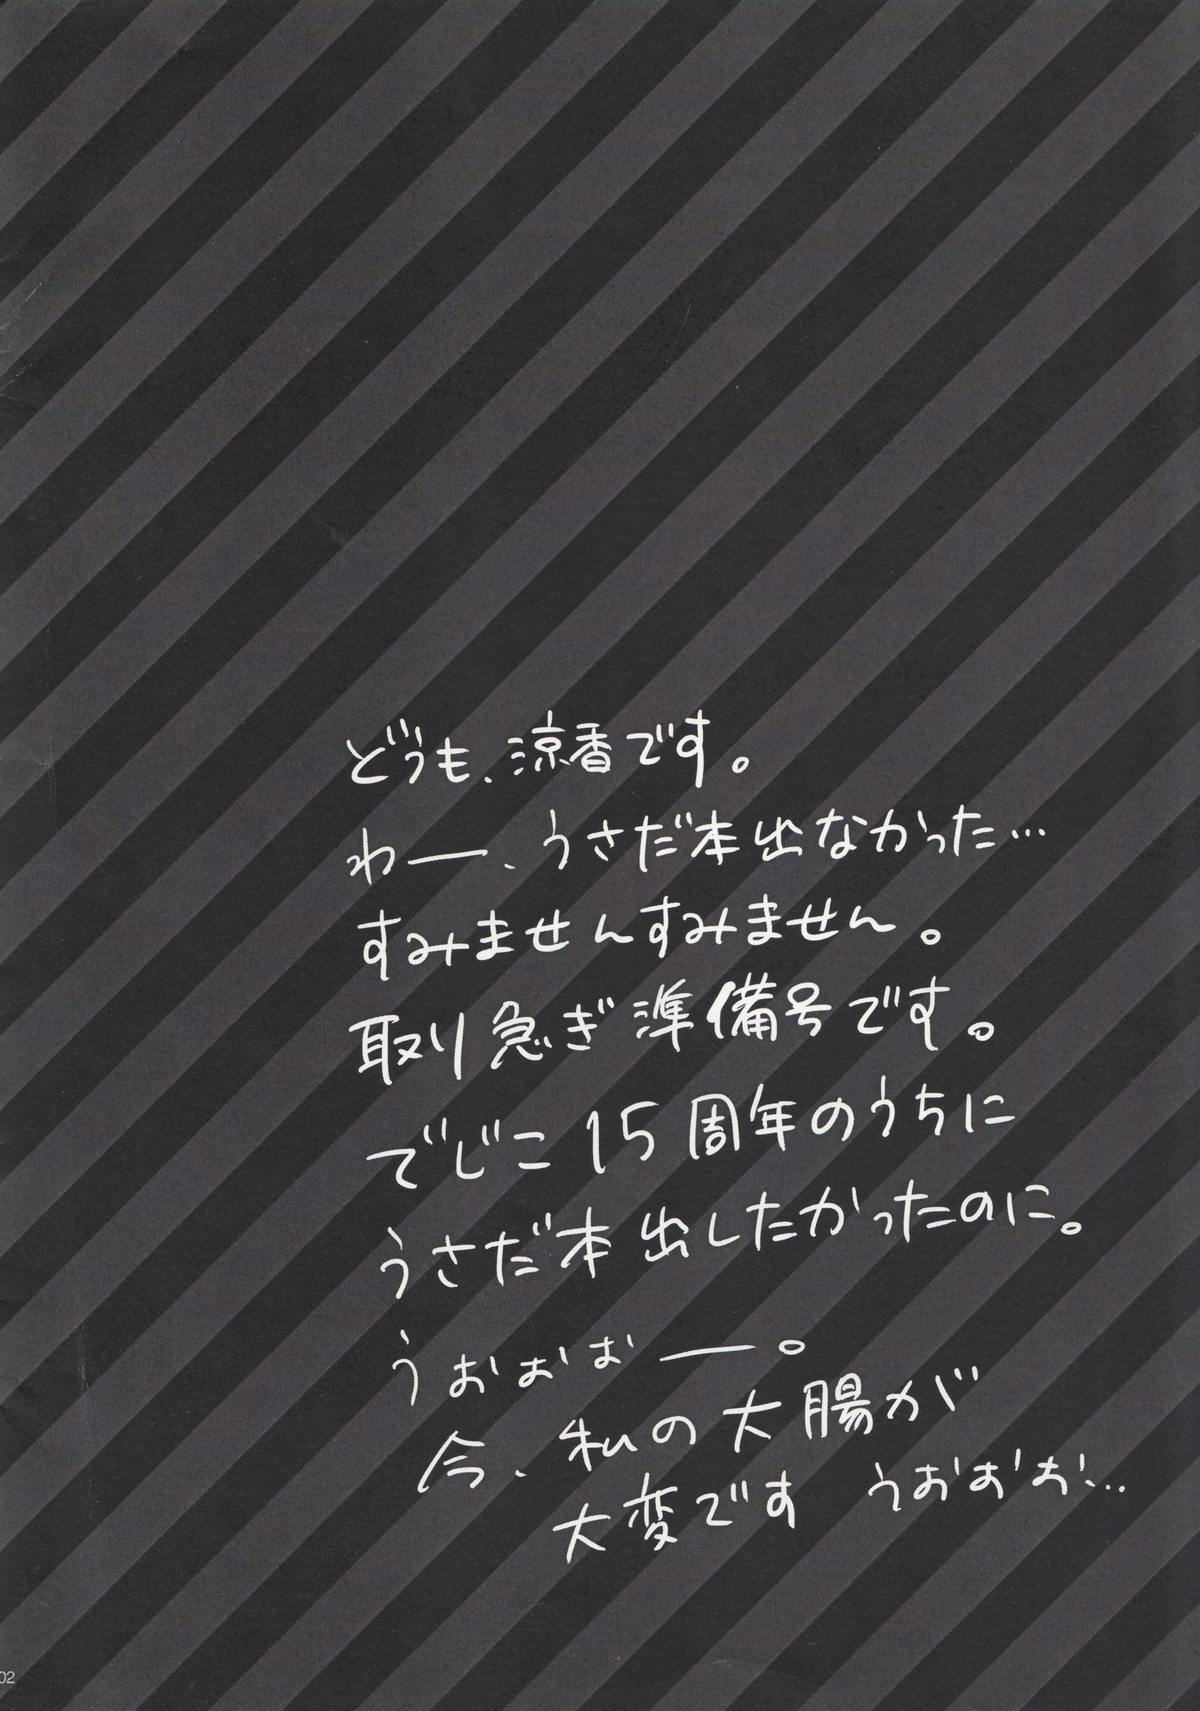 どうも、涼香です。
わー、うさだ本出なかった…
すみませんすみません。
取り急ぎ準備号です。
でじこ15周年のうちに
うさだ本出したかったのに。
うぉぉぉー。
今、私の大腸が
大変です うおおお…
02